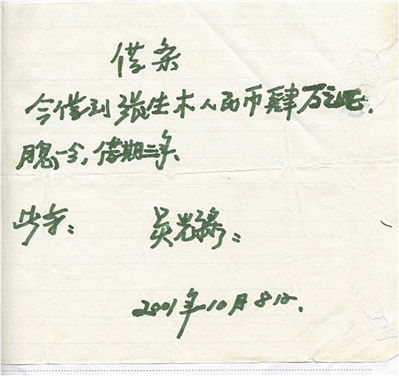 借条
今借到张生木人民币肆万元正.
月息一分,借期二年.
此方:
吴
2001年10月8日.